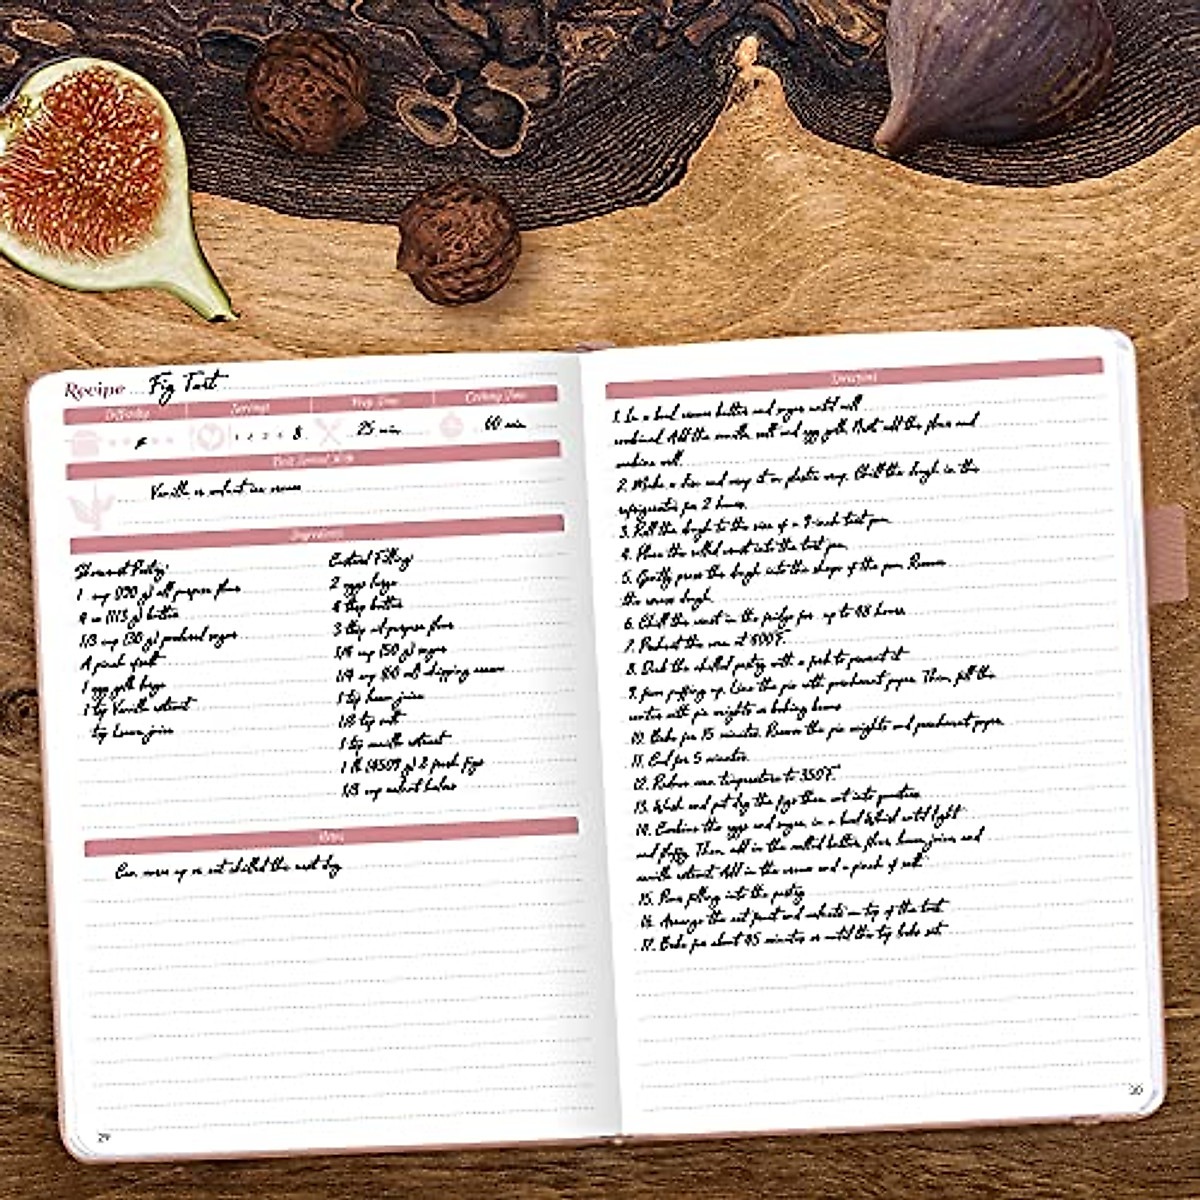 Recipe Fig Tart
Difficulty Servings Prep Time Cooking Time
1 2 3 4 8 25 min 60 min
Best Served With
Vanilla or walnut ice cream
Ingredients
Shortcrust Pastry:
1 cup (120 g) all purpose flour
4 oz (113 g) butter
1/3 cup (30 g) powdered sugar
A pinch of salt
1 egg yolk large
1 tsp Vanilla extract
tsp Lemon juice
Custard Filling:
2 eggs large
4 tbsp butter
3 tbsp all-purpose flour
1/4 cup (50 g) sugar
1/4 cup (60 ml) whipping cream
1 tsp lemon juice
1/8 tsp salt
1 tsp vanilla extract
1 lb (450 g) 2 fresh figs
1/3 cup walnut halves
Notes
Can warm up or eat chilled the next day
29
Directions
1. In a bowl cream butter and sugar until well
combined. Add the vanilla, salt and egg yolk. Next add the flour and
combine well.
2. Make a disc and wrap it in plastic wrap. Chill the dough in the
refrigerator for 2 hours.
3. Roll the dough to the size of a 9-inch tart pan.
4. Place the rolled crust into the tart pan.
5. Gently press the dough into the shape of the pan. Remove
the excess dough.
6. Chill the crust in the fridge for up to 48 hours.
7. Preheat the oven at 400°F.
8. Dock the chilled pastry with a fork to prevent it
9. from puffing up. Line the pie with parchment paper. Then, fill the
center with pie weights or baking beans
10. Bake for 15 minutes. Remove the pie weights and parchment paper.
11. Cool for 5 minutes.
12. Reduce oven temperature to 350°F.
13. Wash and pat dry the figs then cut into quarters.
14. Combine the eggs and sugar, in a bowl Whisk until light
and fluffy. Then, add in the melted butter, flour, lemon juice and
vanilla extract. Add in the cream and a pinch of salt.
15. Pour filling into the pastry
16. Arrange the cut fruit and walnuts on top of the tart.
17. Bake for about 45 minutes or until the top looks set
30